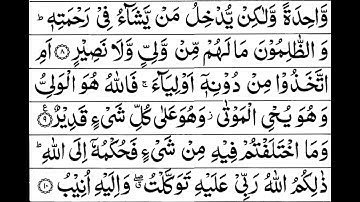 وَّاحِدَةً وَّلٰكِنْ يُّدْخِلُ مَنْ يَّشَآءُ فِىْ رَحْمَتِهٖ ؕ
وَالظّٰلِمُوْنَ مَا لَهُمْ مِّنْ وَّلِىٍّ وَّلَا نَصِيْرٍ ۸ اَمِ
اتَّخَذُوْا مِنْ دُوْنِهٖۤ اَوْلِيَآءَ ۚ فَاللّٰهُ هُوَ الْوَلِىُّ
وَهُوَ يُحْىِ الْمَوْتٰى ؗ وَهُوَ عَلٰى كُلِّ شَىْءٍ قَدِيْرٌ ۹ ع
وَمَا اخْتَلَفْتُمْ فِيْهِ مِنْ شَىْءٍ فَحُكْمُهٗۤ اِلَى اللّٰهِ ؕ
ذٰلِكُمُ اللّٰهُ رَبِّىْ عَلَيْهِ تَوَكَّلْتُ ۖ وَاِلَيْهِ اُنِيْبُ ۱۰